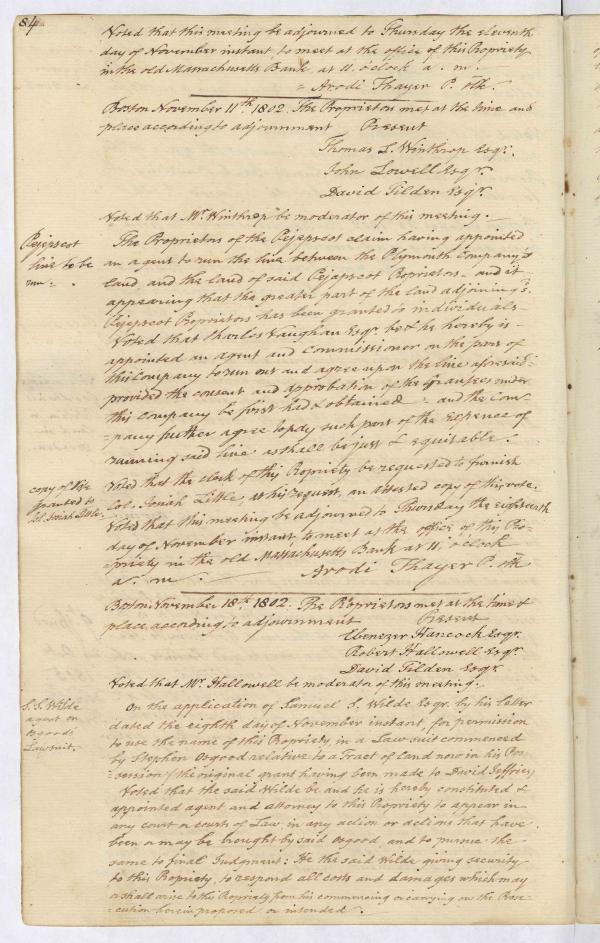 84
Voted that this meeting be adjourned to Thursday the eleventh
day of November instant to meet at the office of this Propriety
in the old Massachusetts Bank, at 11, o'clock a. m.
Arodi Thayer P. Clk.
Boston November 11th. 1802. The Proprietors met at the time and
place according to adjournment Present
Thomas L. Winthrop Esqr.
John Lowell Esqr.
David Tilden Esqr.
Voted that Mr. Winthrop be moderator of this meeting.
Pejepscot
line to be
run.
The Proprietors of the Pejepscot claim having appointed
an agent to run the line between the Plymouth Company's
land, and the land of said Pejepscot Proprietors - and it
appearing that the greater part of the land adjoining sd.
Pejepscot Proprietors has been granted to individuals -
Voted that Charles Vaughan Esqr. be & he hereby is -
appointed an agent and commissioner on the part of
this Company to run out and agree upon the line aforesaid -
provided the consent and approbation of the Grantees under
this Company be first had & obtained - and the Com-
=pany further agree to pay such part of the expence of
running said line as shall be just & equitable.
copy of
granted to
Col. Josiah Little.
Voted that the clerk of this Propriety be requested to furnish
Col. Josiah Little, at his request, an attested copy of this vote.
Voted that this meeting be adjourned to Thursday the eighteenth
day of November instant to meet at the office of this Pro-
=priety in the old Massachusetts Bank at 11, o'clock
a. m. Arodi Thayer P. Clk
Boston November 18th. 1802. The Proprietors met at the time &
place according to adjournment Present
Ebenezer Hancock Esqr.
Robert Hallowell Esqr.
David Tilden Esqr.
Voted that Mr. Hallowell be moderator of this meeting.
S. S. Wilde
agent on
Osgood's
Lawsuit.
On the application of Samuel S. Wilde Esqr. by his letter
dated the eighth day of November instant, for permission
to use the name of this Propriety, in a Law suit commenced
by Stephen Osgood relative to a Tract of Land now in his Pos-
session (the original grant having been made to David Jeffries)
Voted that the said Wilde be and he is hereby constituted &
appointed agent and attorney to this Propriety to appear in
any court or courts of Law, in any action or actions that have
been or may be brought by said Osgood, and to pursue the
same to final Judgment: He the said Wilde giving security
to this Propriety, to respond all costs and damages which may
or shall arise to this Propriety from his commencing or carrying on the Prose-
=cution herein proposed or intended.